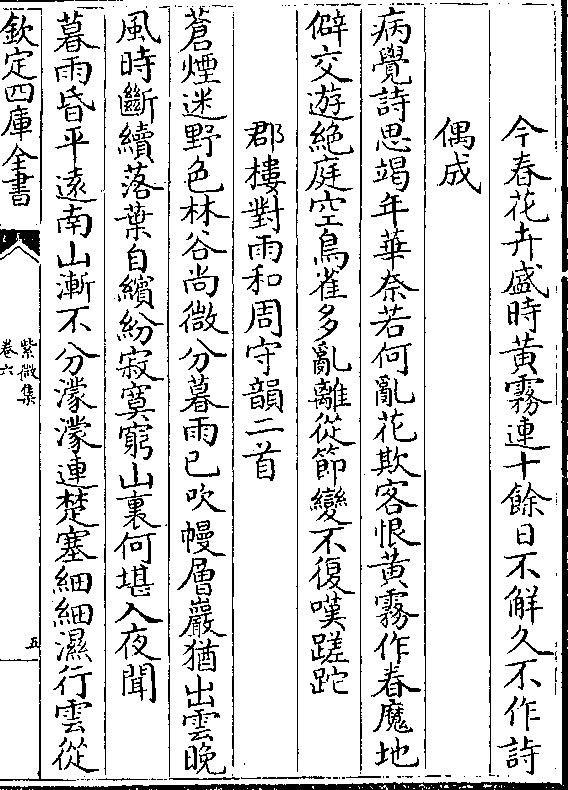 今春花卉盛時黃霧連十餘日不解久不作詩
偶成
病覺詩思竭年華奈若何亂花欺客恨黃霧作春魔地
僻交遊絶庭空鳥雀多亂離從節變不復嘆蹉跎
郡樓對雨和周守韻二首
蒼煙迷野色林谷尚微分暮雨已吹幔層巖猶出雲晚
風時斷續落葉自繽紛寂寞窮山裏何堪入夜聞
暮雨昏平遠南山漸不分濛濛連楚塞細細濕行雲從
欽定四庫全書
紫微集
卷六
五